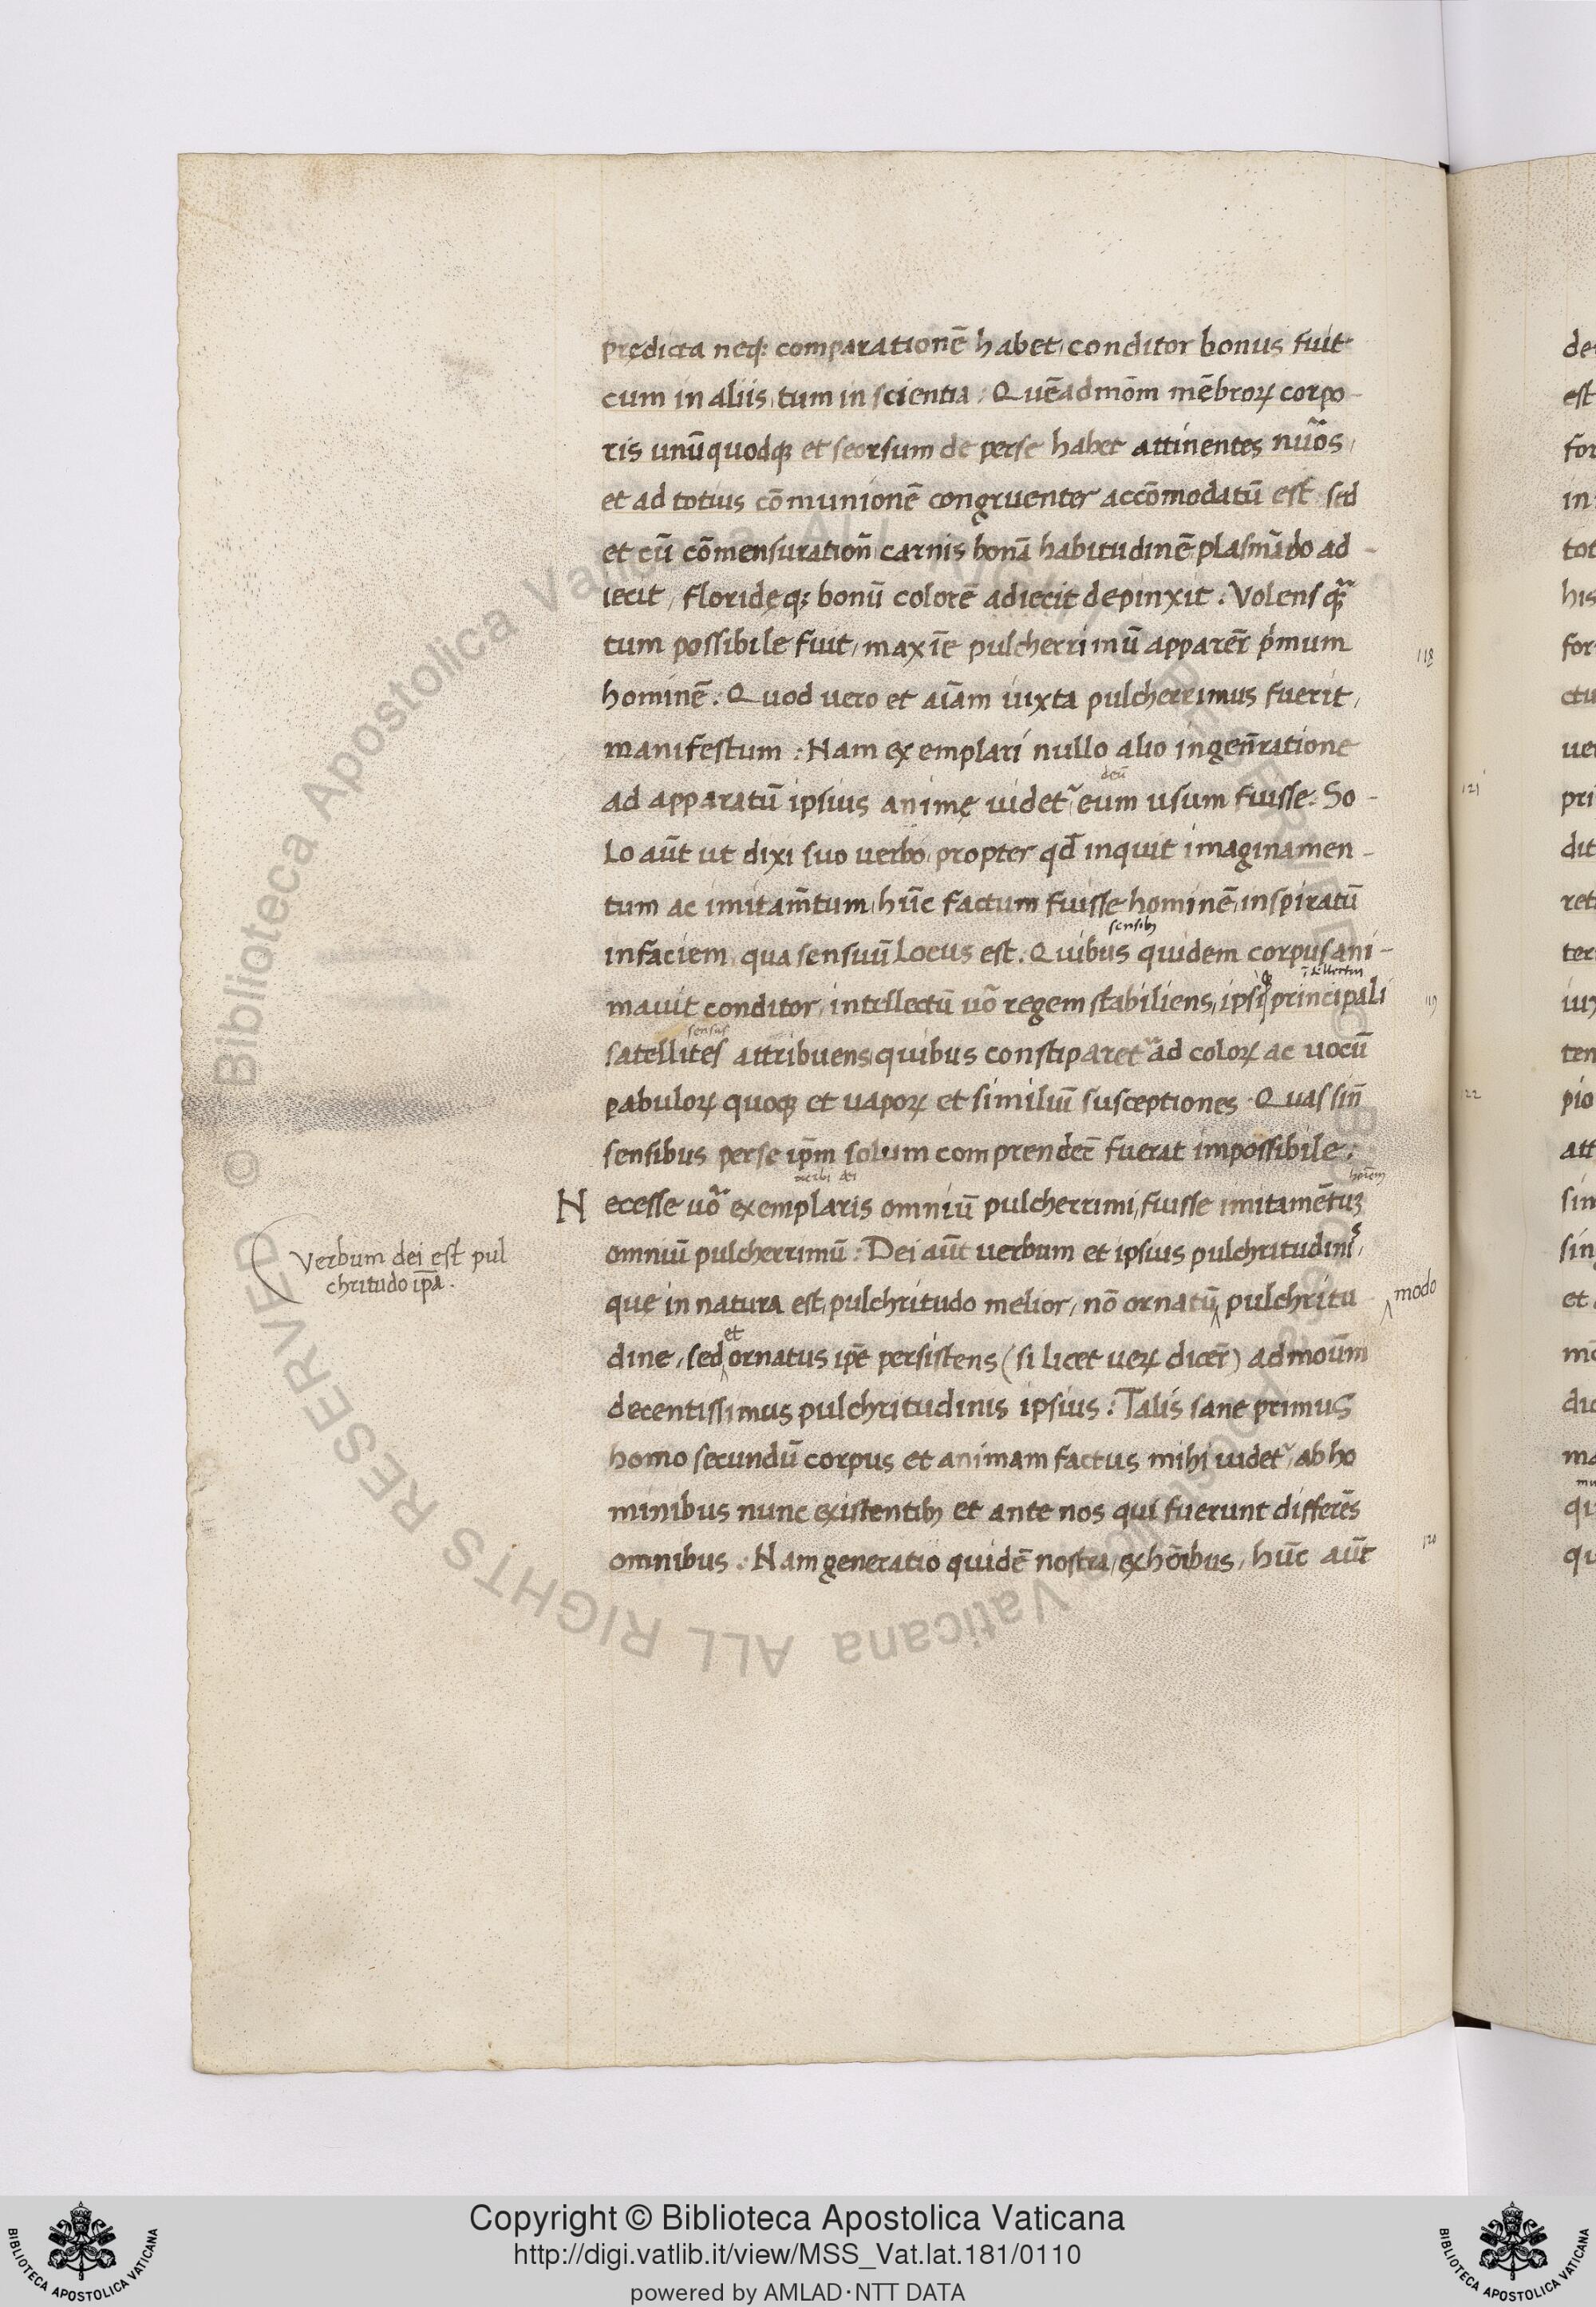 prędicta neq; comparationē habet, conditor bonus fuit
cum in aliis, tum in scientia. Quēadmōm mēbroꝝ corpo-
ris unūquodqꝫ et seorsum de perse habet attinentes nūo͞s,
et ad totius cōmunionē congruenter accōmodatū est sed
et cū cōmensuratioñ carnis bonā habitudinē plasmādo ad-
iecit, floridęqꝫ bonū colorē adiecit depinxit. Volens quā
tum possibile fuit, maxīe pulcherrimū apparer̄ pͥmum
hominē. Quod uero et aīam iuxta pulcherrimus fuerit,
manifestum. Nam exemplari nullo alio in gen̄ratione
deū
ad apparatū ipsius animę uidetᷣ eum usum fuisse. So-
lo aūt ut dixi suo uerbo, propter qđ inquit imaginamen-
tum ac imitam̄tum, hūc factum fuisse hominē, inspiratū
sensibꝫ
in faciem, qua sensuū Locus est. Quibus quidem corpus ani-
ītellectui
mauit conditor, intellectū uō regem stabiliens, ipsi principali
sensus
satellites attribuens quibus constiparetᷣ ad coloꝝ ac uocū
pabuloꝝ quoqꝫ et uapoꝝ et similiū susceptiones. Quas sin̄
sensibus perse ip̄m solum comprender̄ fuerat impossibile.
uerbi dei hoīem
Necesse uō exemplaris omniū pulcherrimi, fuisse imitamētuꝫ
omniū pulcherrimū. Dei aūt uerbum et ipsius pulchritudinis,
Verbum dei est pul
chritudo ip̄a.
quę in natura est, pulchritudo melior, nō ornatū pulchritu
modo
et
dine, sed ornatus ip̄e persistens (si licet ueꝝ dicer̄) admoūm
decentissimus pulchritudinis ipsius. Talis sane primus
homo secundū corpus et animam factus mihi uidetᷣ, ab ho
minibus nunc existentibꝫ et ante nos qui fuerunt differēs
omnibus. Nam generatio quidē nostra, ex hōībus, hūc aūt
118
119
120
121
22
Copyright © Biblioteca Apostolica Vaticana
http://digi.vatlib.it/view/MSS_Vat.lat.181/0110
powered by AMLAD·NTT DATA
BIBLIOTECA APOSTOLICA VATICANA
BIBLIOTECA APOSTOLICA VATICANA
© Biblioteca Apostolica Vaticana ALL RIGHTS RESERVED
© Biblioteca Apostolica Vaticana ALL RIGHTS RESERVED